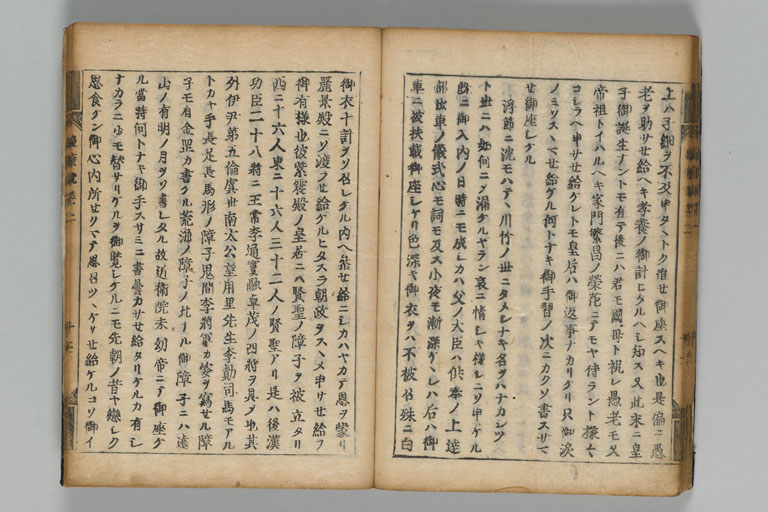 上ハ子細ヲ不及申タヽトク進セ御座スヘキ也是偏ニ愚
老ヲ助サセ給ヘキ孝養ノ御計ヒタルヘシ知ス又此末ニ皇
子御誕生ナントモ有テ後ニハ君モ國母ト祝レ愚老モ又
帝祖トイハルヘキ家門繁昌ノ榮花ニテモヤ侍ラント様々
コシラヘ申サセ給ケレトモ皇后ハ御返事ナカリケリ只御涙
ノミソスヽマセ給ケル何トナキ御手習ノ次ニカクソ書スサマ
セ御座シケル
浮節ニ沈モハテヽ川竹ノ世ニタメシナキ名ヲハナカシツ
ト世ニハ如何ニソ漏ケルヤラン哀ニ情シキ様ニソ申ケル
既ニ御入内ノ日時ニモ成シカハ父ノ大臣ハ供奉ノ上達
部出車ノ儀式心モ詞モ及ス小夜モ漸深ケレハ后ハ御
車ニ被扶載御座シケリ色深キ御衣ヲハ不被召殊ニ白
御衣十計ヲソ召レケル内ヘ参セ給ニシカハヤカテ恩ヲ蒙リ
麗景殿ニソ渡ラセ給ケルヒタスラ朝政ヲスヽメ申サセ給フ
御有様也彼紫宸殿ノ皇居ニハ賢聖ノ障子ヲ被立タリ
西ニ十六人東ニ十六人三十二人ノ賢聖アリ是ハ後漢
功臣二十八将ニ王常李通竇融卓茂ノ四将ヲ具ソ也其
外伊尹第五倫虞世南太公望甪里先生李勣司馬モアル
トカヤ手長足長馬形ノ障子鬼間李将軍カ姿ヲ寫セル障
子モ有金罡カ書タル荒海ノ障子ノ北ナル御障子ニハ遠
山ノ有明ノ月ヲソ書レタル故近衛院未幼帝ニテ御座ケ
ル當時何トナキ御手スサミニ書曇カサセ給タリケルカ有シ
ナカラニ少モ替サリケルヲ御覧シケルニモ先朝ノ昔ヤ戀シク
思食ケン御心内所セクマテ思召ツヽケサセ給ケルコソ御イ